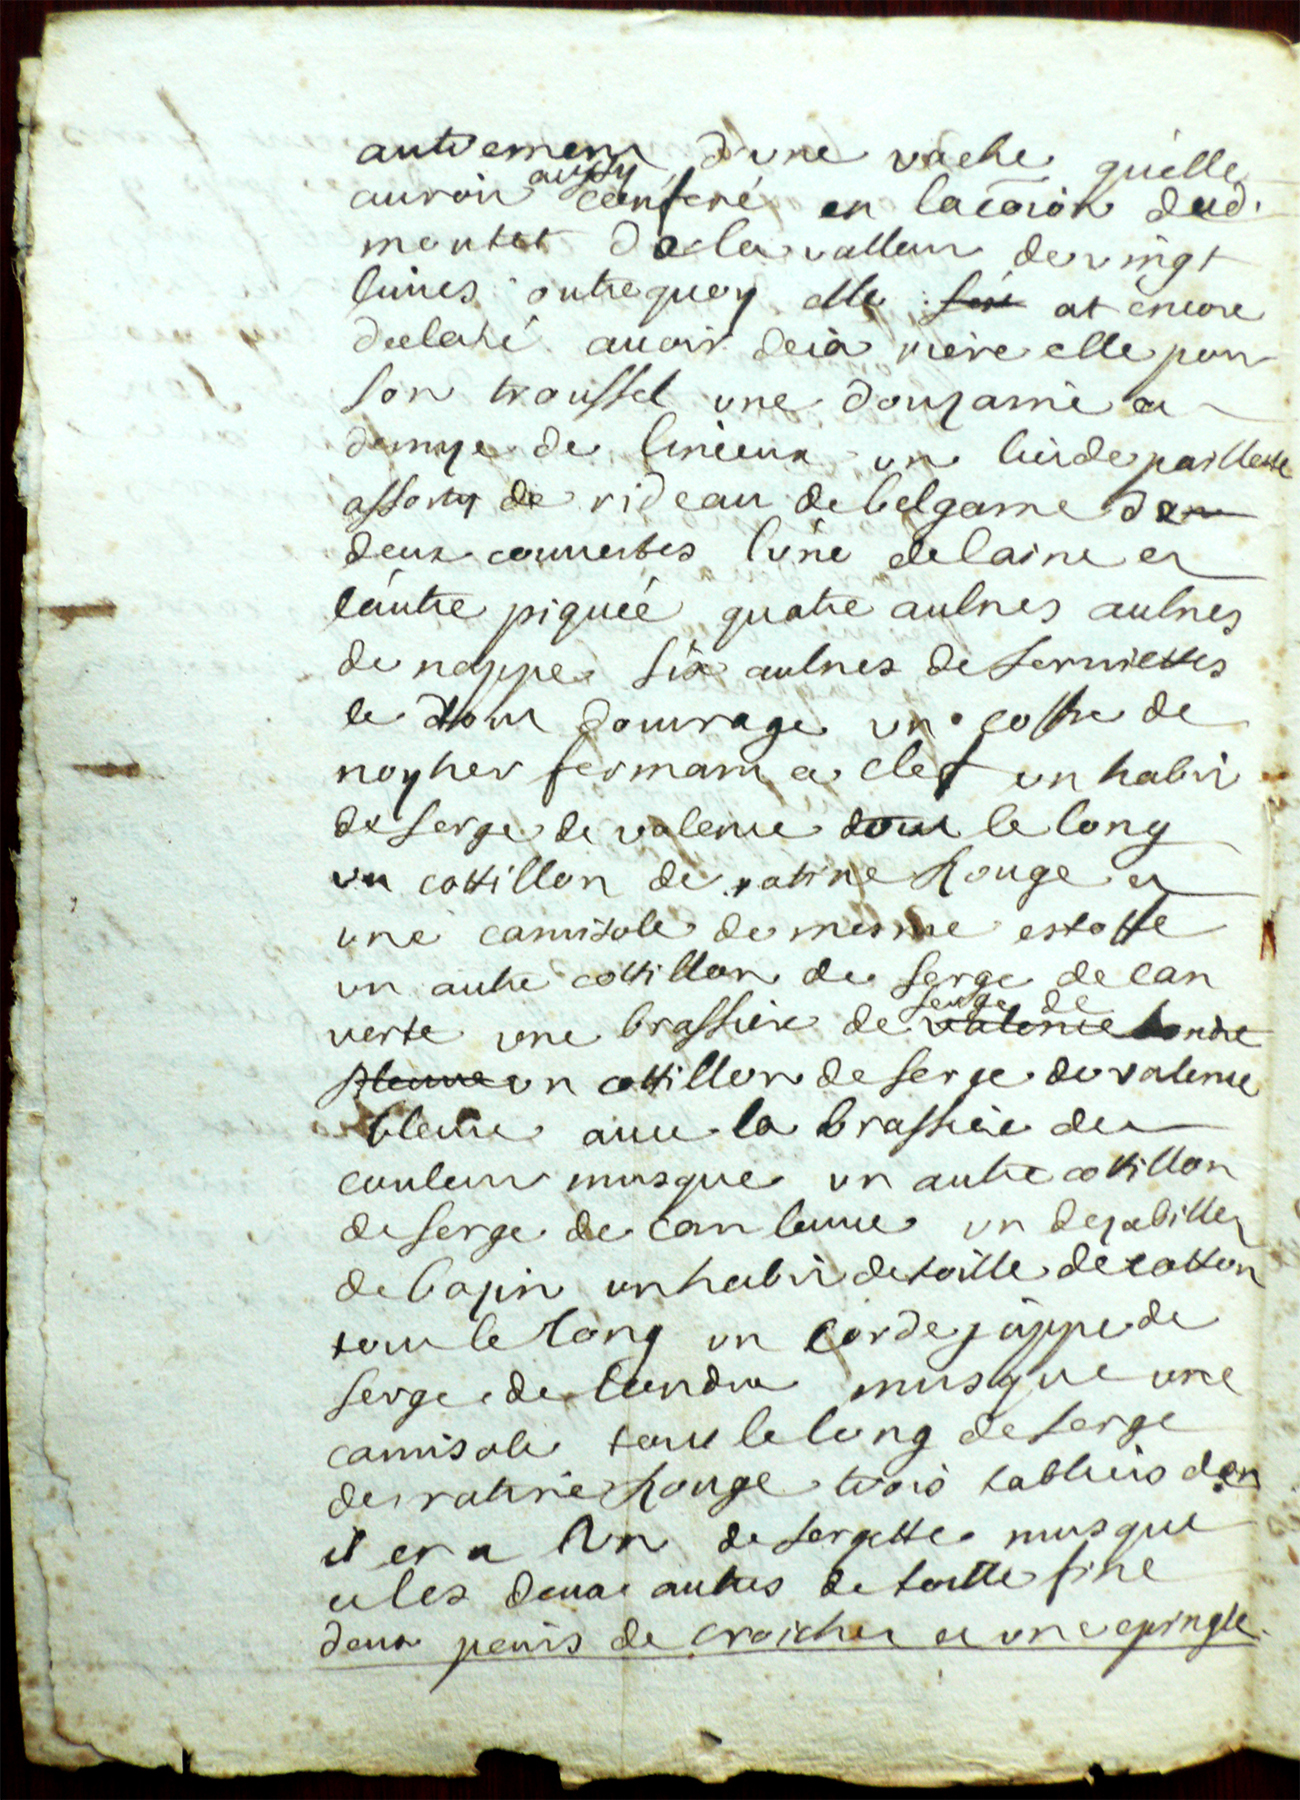 autrement d'une vache qu'elle
auroit aussy conferé en la maison dud.
moutet de la valleur de vingt
livres outre quoy elle at encore
declaré avoir deja riere elle pour
son troussel une douzaine et
demye de linieux un lict de paillesse
assorty de rideau de belgame
deux couvertes l'une de laine et
l'autre piquée quatre aulnes aulnes
de nappe six aulnes de serviettes
le tout d'ouvrage un coffre de
noyher fermant a clef un habit
de serge de valence le long
un cottillon de ratine Rouge et
une camisole de mesme estoffe
un autre cottillon de serge de can
verte une brassiere de serge de londre
un cottillon de serge de valence
bleuve avec la brassiere de
couleur musque un autre cotillon
de serge de can bleuve un dezabiller
de bazin un habit de toille de cotton
tout le Long un cor de juppe de
serge de londre musque une
camisole tout le long de serge
de ratine Rouge trois tabliers don
il en a Un de sergette musque
et les deux autres de toille fine
deux peuis de croichet et une epingle